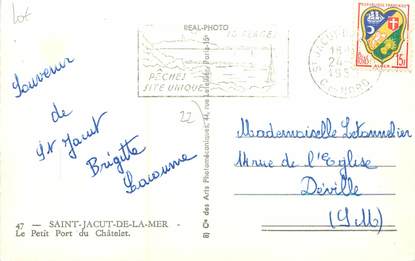 Lot
REAL-PHOTO
10 PLAGES
PÊCHES
SITE UNIQUE
ST JACUT-DE-LA-
24-
195
CS DU NORD
REPUBLIQUE FRANÇAISE
POSTES
15F
ALGER
Souvenir
de
St Jacut
Brigitte
Lacoume
22
8) Cie des Arts Photomécaniques, 44, rue Letellier, Paris-15e
Mademoiselle Letonnelier
rue de l'Eglise
Déville
(S.M)
47 — SAINT-JACUT-DE-LA-MER -
Le Petit Port du Châtelet.